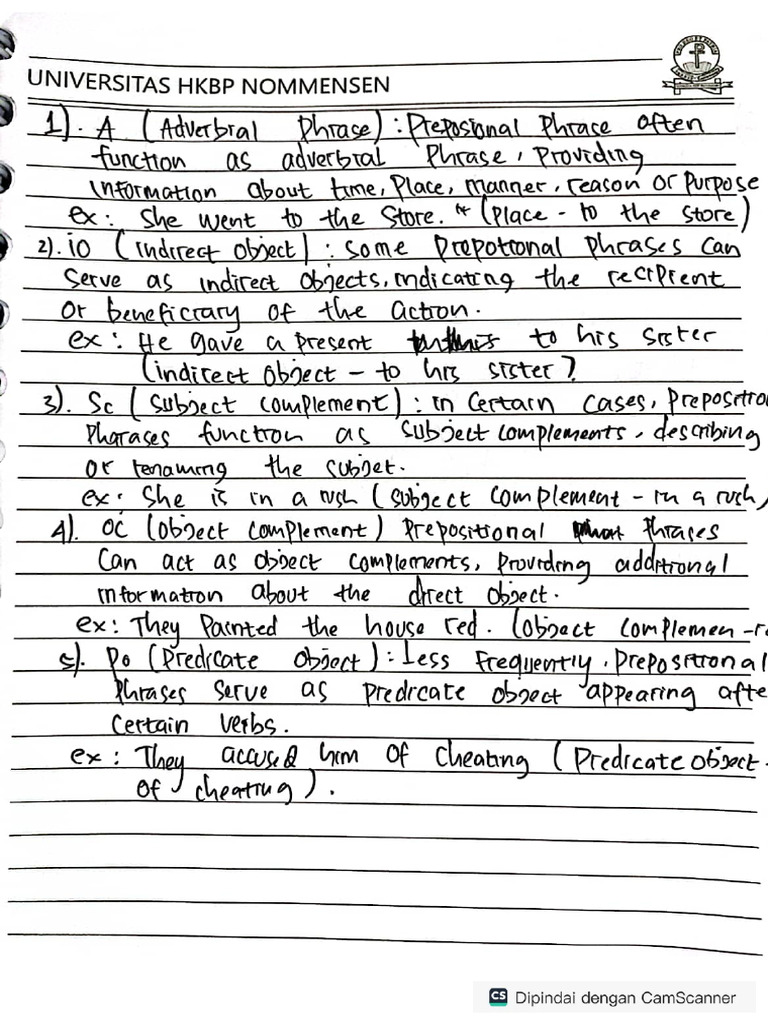 UNIVERSITAS HKBP NOMMENSEN
1). A (Adverbial Phrase) : Preposional Phrase often
function as adverbial Phrase, Providing
information about time, Place, manner, reason or Purpose
ex : She went to the Store. (Place - to the store)
2). io (indirect object) : some Prepotional phrases can
Serve as indirect objects, indicating the recipient
Or beneficiary of the action.
ex : He gave a present to his sister
(indirect object - to his sister)
3). Sc (Subject complement) : in Certain cases, Prepositio
Pharases function as subject complements, describing
or renaming the subjet.
ex : She is in a rush (subject complement - in a rush)
4). OC (object complement) Prepositional Phrases
Can act as object complements, providing additional
information about the direct object.
ex : They Painted the house red. (object complemen - r
5). Po (Predicate object) : Less frequently, prepositional
Phrases serve as predicate object appearing afte
Certain verbs.
ex : They accused him of cheating (Predicate object -
of cheating).
CS Dipindai dengan CamScanner